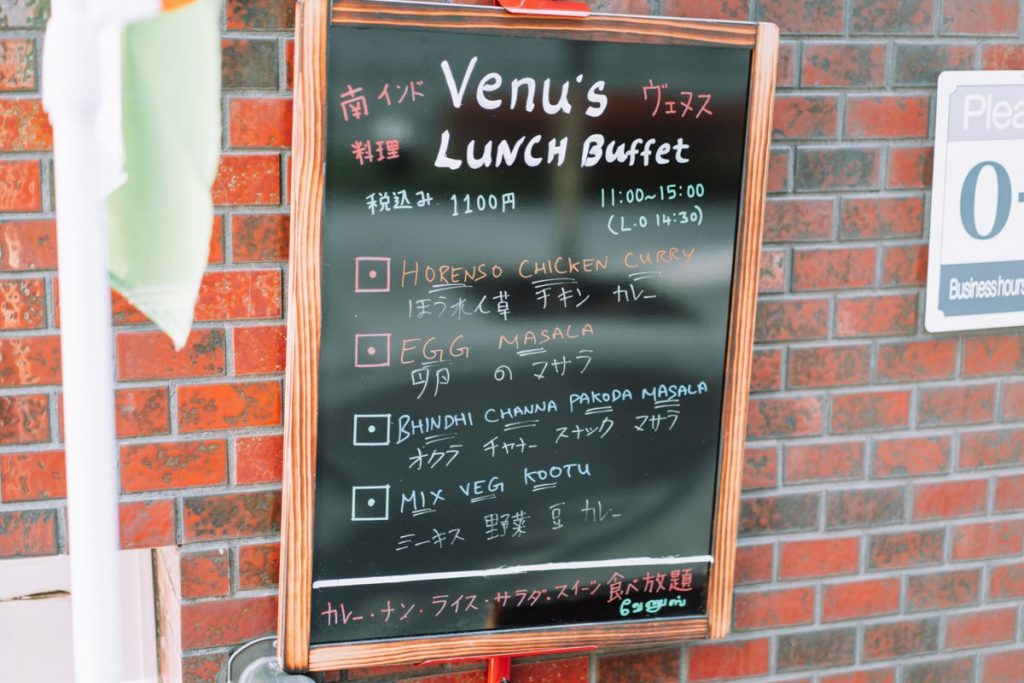 Venu's
南インド ヴェヌス
料理 LUNCH Buffet
税込み 1100円 11:00~15:00
(L.O 14:30)
HORENSO CHICKEN CURRY
ほうれん草 チキン カレー
EGG MASALA
卵 の マサラ
BHINDHI CHANNA PAKODA MASALA
オクラ チャナー スナック マサラ
MIX VEG KOOTU
ミーキス 野菜 豆 カレー
カレー・ナン・ライス・サラダ・スイーツ 食べ放題
வேணுஸ்
Plea
0-
Business hours